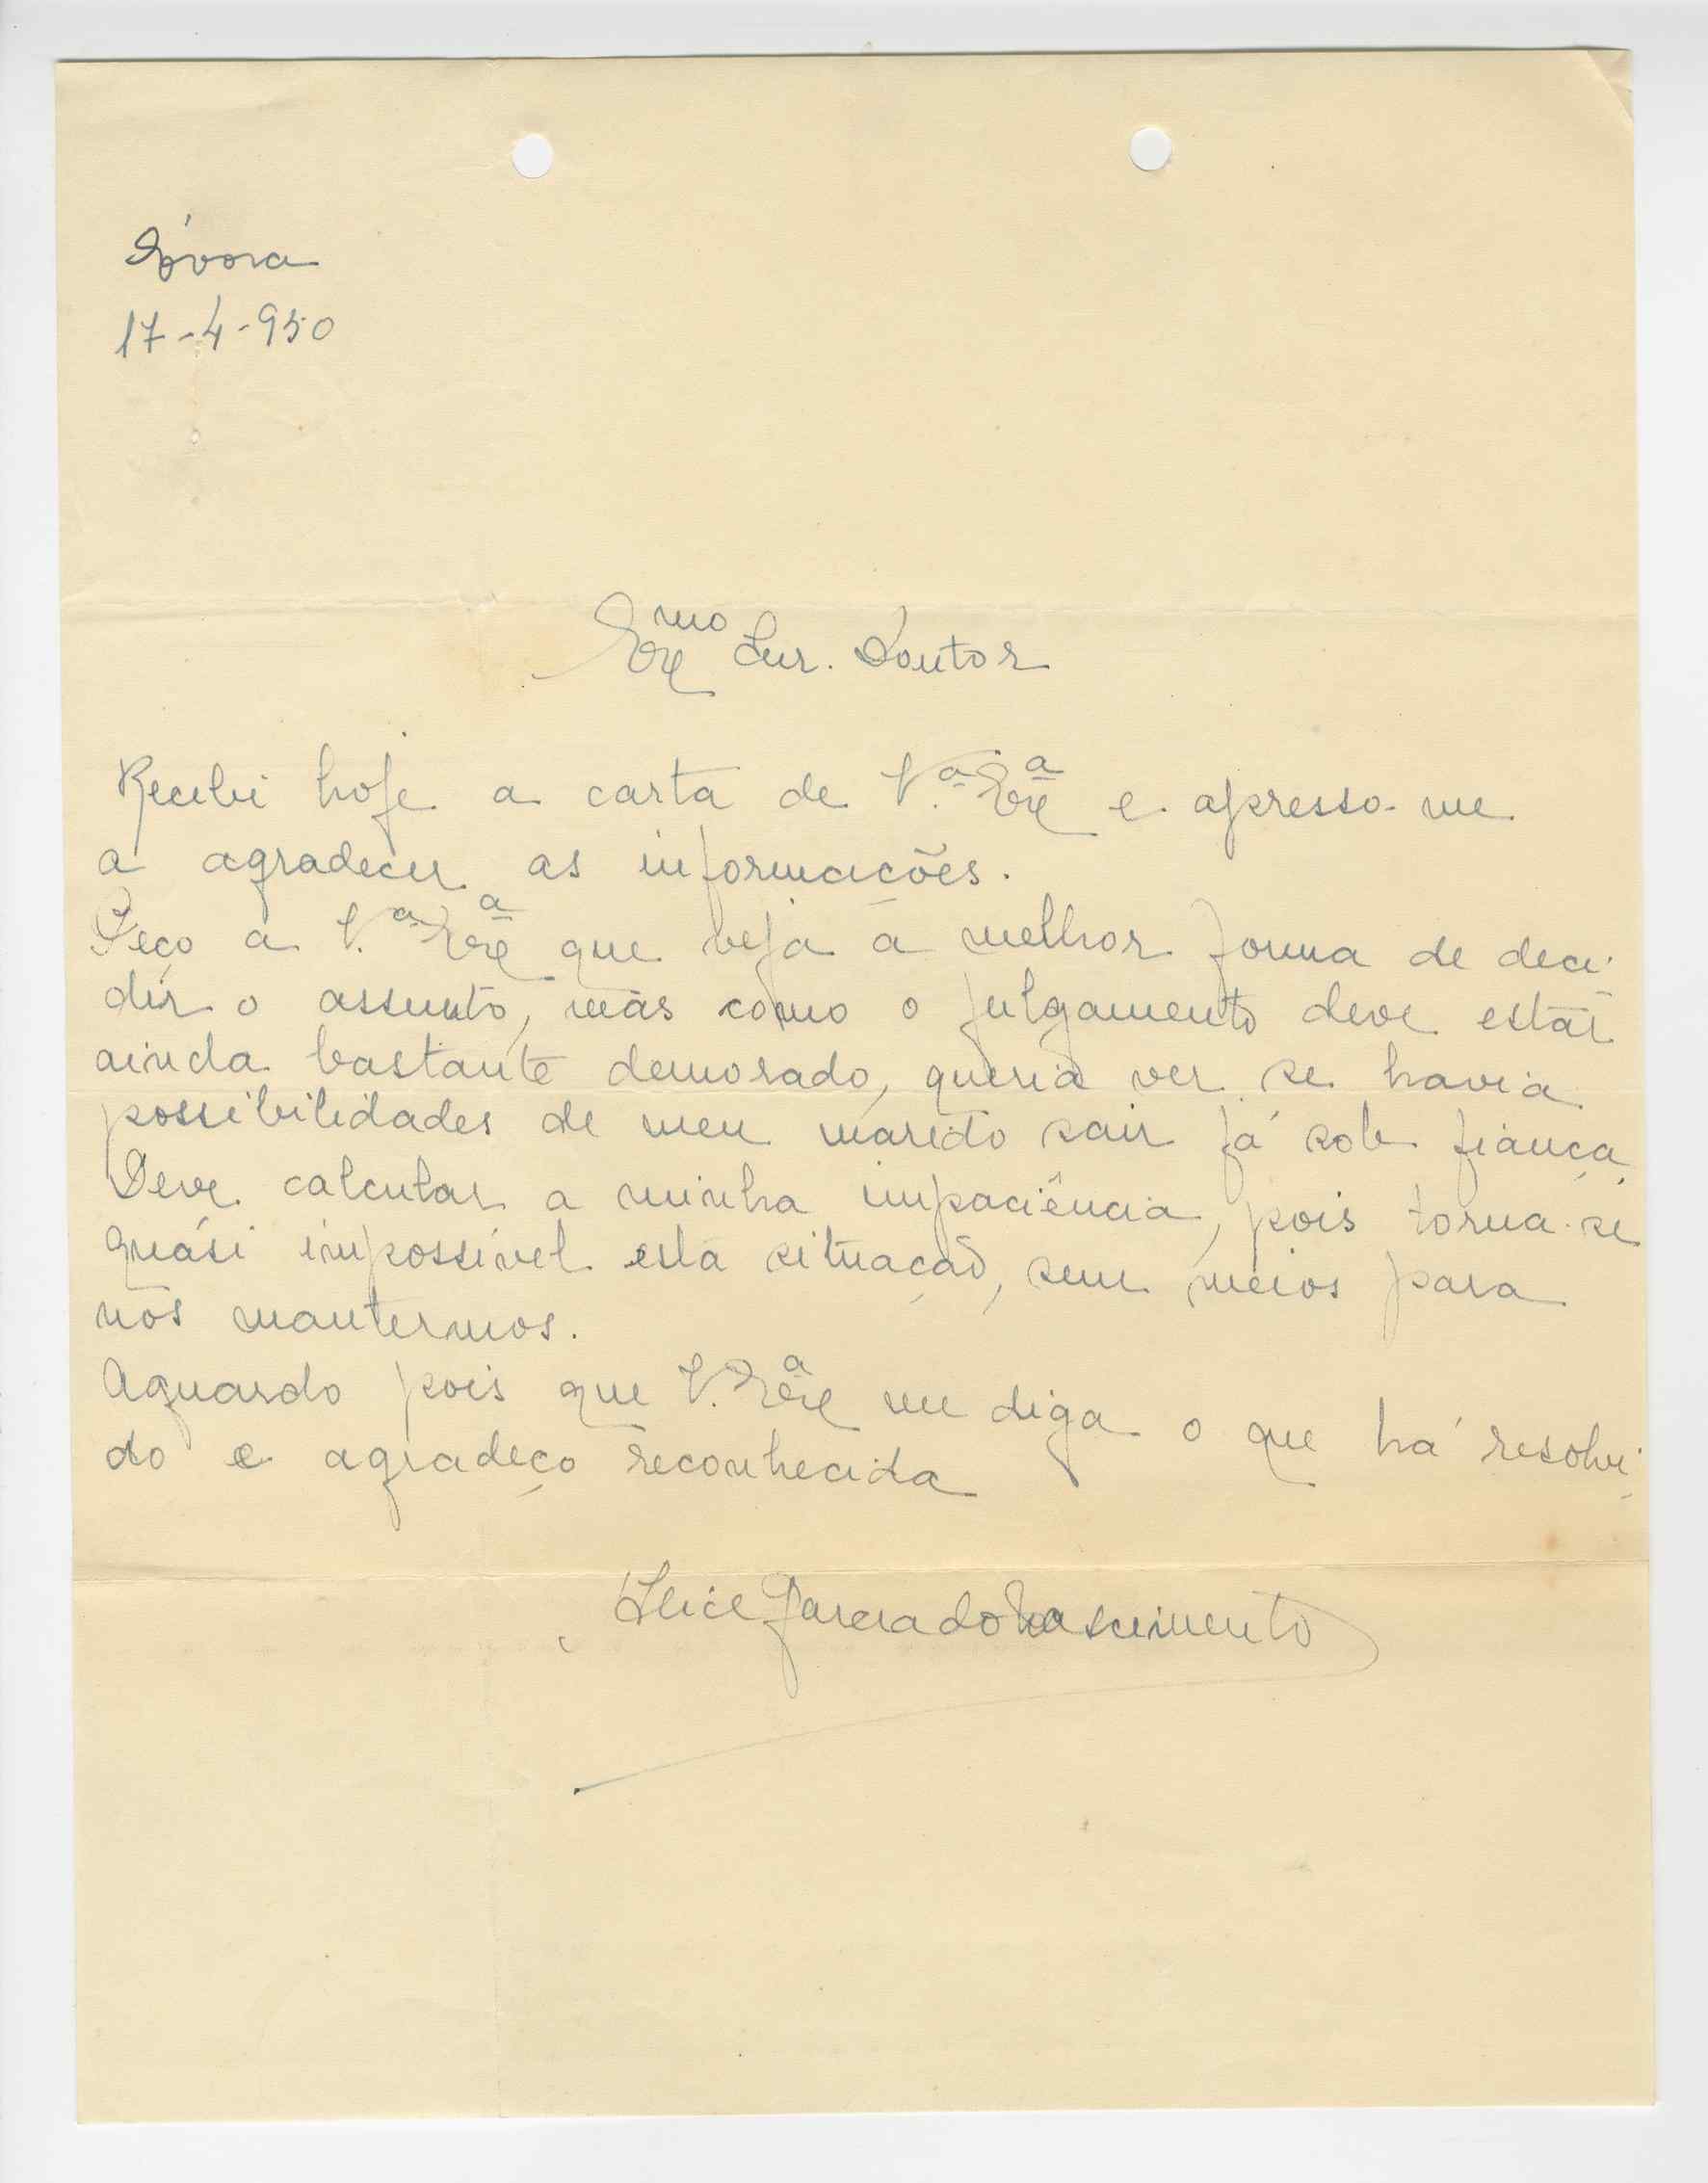 Évora
17-4-950
Exmo Snr. Doutor
Recebi hoje a carta de V.ª Exª e apresso-me
a agradecer as informações.
Peço a V.ª Exª que veja a melhor forma de deci-
dir o assunto, mas como o julgamento deve estar
ainda bastante demorado, queria ver se havia
possibilidades de meu marido sair já sob fiança.
Deve calcular a minha impaciência, pois torna-se
quási impossível esta situação, sem meios para
nos mantermos.
Aguardo pois que V. Exª me diga o que há resolvi-
do e agradeço reconhecida
Alice Garcia do Nascimento